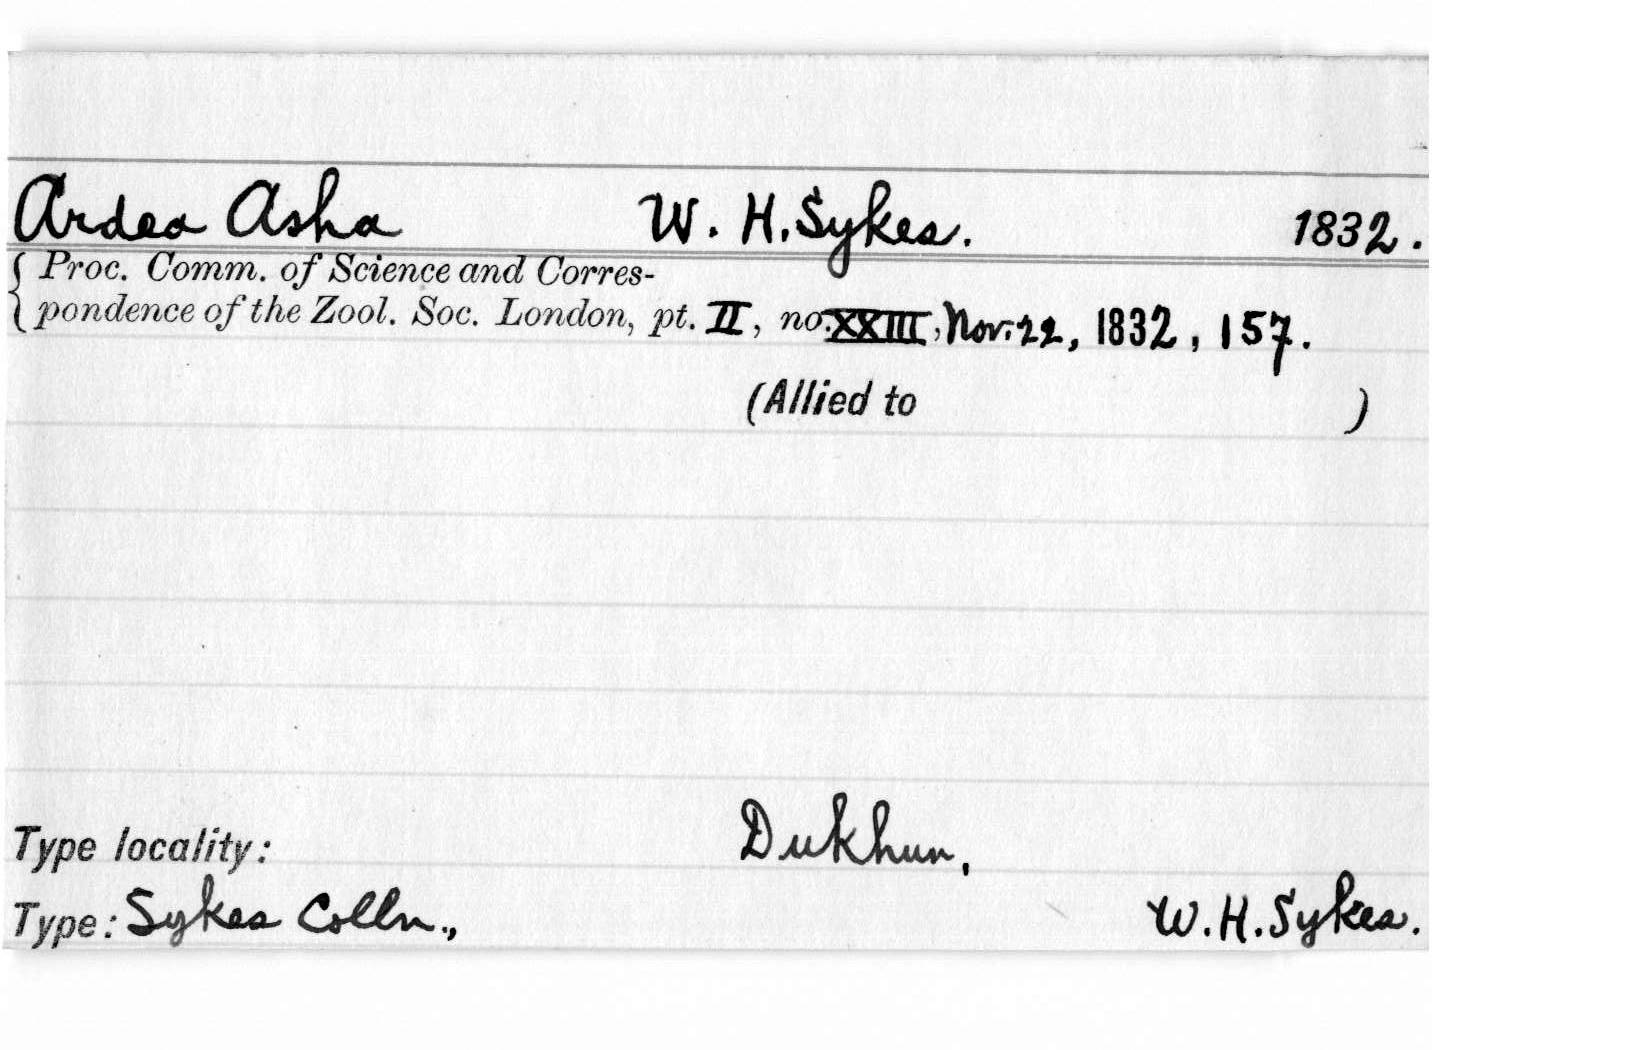 Ardea Asha W. H. Sykes. 1832.
Proc. Comm. of Science and Corres-
pondence of the Zool. Soc. London, pt. II, no. XXIII, Nov. 22, 1832, 157.
(Allied to )
Type locality: Dukhun,
Type: Sykes Colln., W. H. Sykes.